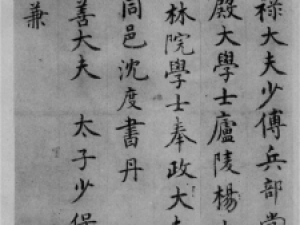 祿大夫少傅兵部尚
殿大學士廬陵楊士
林院學士奉政大夫
同邑沈度書丹
善大夫 太子少保
兼